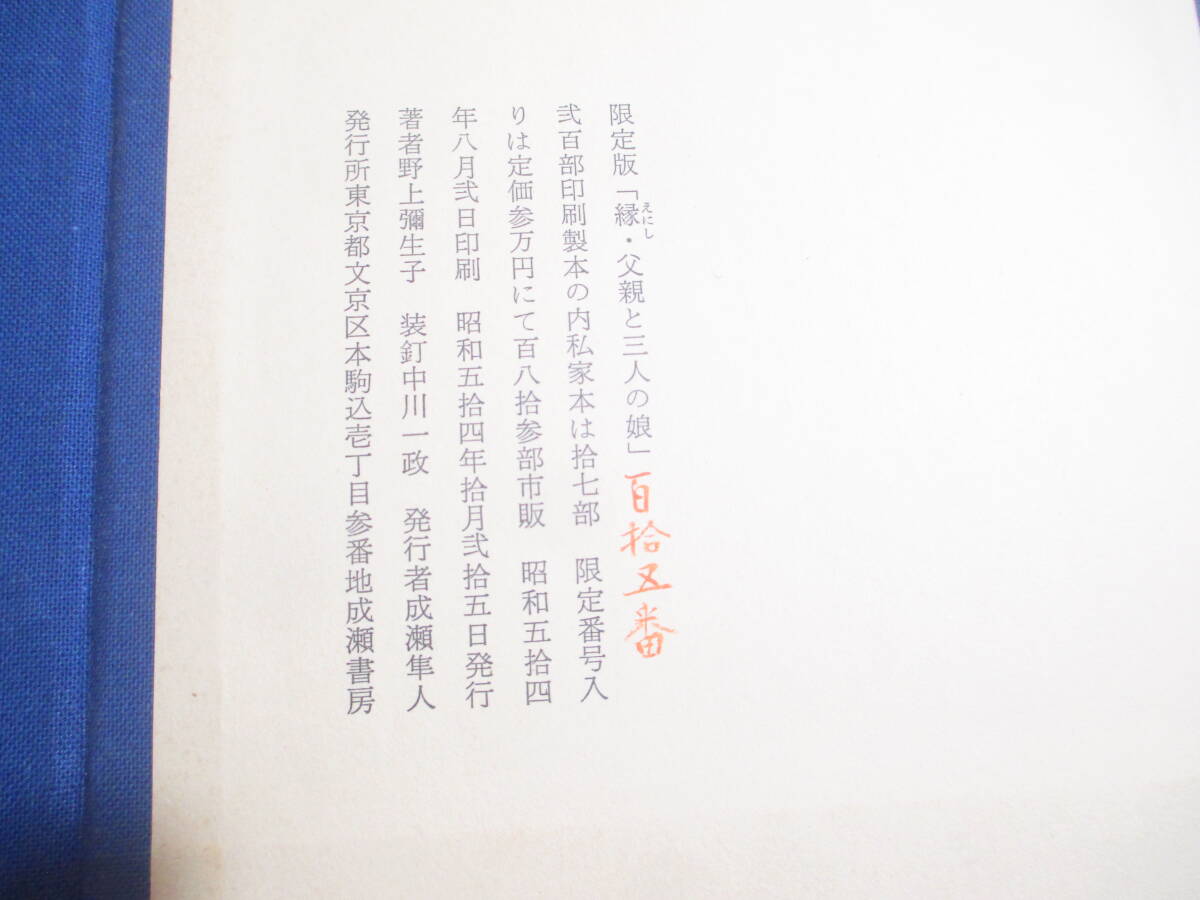 限定版「縁・父親と三人の娘」百拾五番
えにし
弐百部印刷製本の内私家本は拾七部　限定番号入
りは定価参万円にて百八拾参部市販　昭和五拾四
年八月弐日印刷　昭和五拾四年拾月弐拾五日発行
著者野上彌生子　装釘中川一政　発行者成瀬隼人
発行所東京都文京区本駒込壱丁目参番地成瀬書房